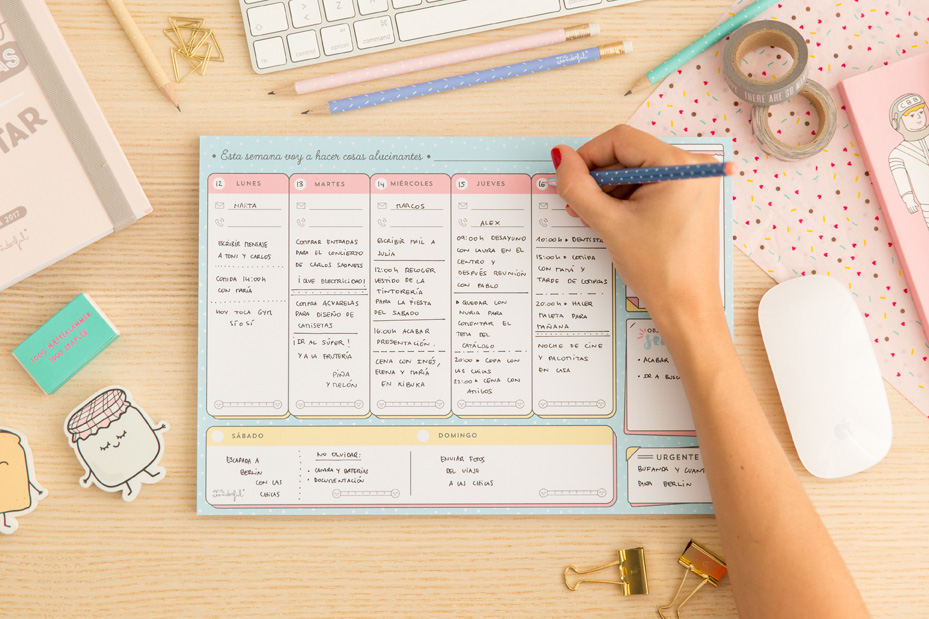 control
option
command
command
THERE ARE SO
TAR
2017
Esta semana voy a hacer cosas alucinantes
12 LUNES
MARTA
ESCRIBIR MENSAJE
A TONI Y CARLOS
COMIDA 14:00H
CON MARÍA
HOY TOCA GYM
SÍ O SÍ
13 MARTES
COMPRAR ENTRADAS
PARA EL CONCIERTO
DE CARLOS SADNESS
¡QUE ELECTRICIDAD!
COMPRA ACUARELAS
PARA DISEÑO DE
CAMISETAS
¡IR AL SÚPER!
Y A LA FRUTERÍA
PIÑA
Y MELÓN
14 MIÉRCOLES
MARCOS
ESCRIBIR MAIL A
JULIA
12:00H RECOGER
VESTIDO DE LA
TINTORERÍA
PARA LA FIESTA
DEL SÁBADO
16:00H ACABAR
PRESENTACIÓN.
CENA CON INÉS,
ELENA Y MARÍA
EN KIBUKA
15 JUEVES
ALEX
09:00H DESAYUNO
CON LAURA EN EL
CENTRO Y
DESPUÉS REUNIÓN
CON PABLO
QUEDAR CON
NURIA PARA
COMENTAR EL
TEMA DEL
CATÁLOGO
20:00H COPA CON
LAS CHICAS
22:00H CENA CON
AMIGOS
16
10:00H DENTISTA
15:00H COMIDA
CON MAMÁ Y
TARDE DE COMPRAS
20:00H HACER
MALETA PARA
MAÑANA
NOCHE DE CINE
Y PALOMITAS
EN CASA
ACABAR
IR A BUSC
SÁBADO
ESCAPADA A
BERLÍN
CON LAS
CHICAS
NO OLVIDAR:
CÁMARA Y BATERÍAS
DOCUMENTACIÓN
DOMINGO
ENVIAR FOTOS
DEL VIAJE
A LAS CHICAS
URGENTE
BUFANDA Y GUAN
PARA BERLÍN